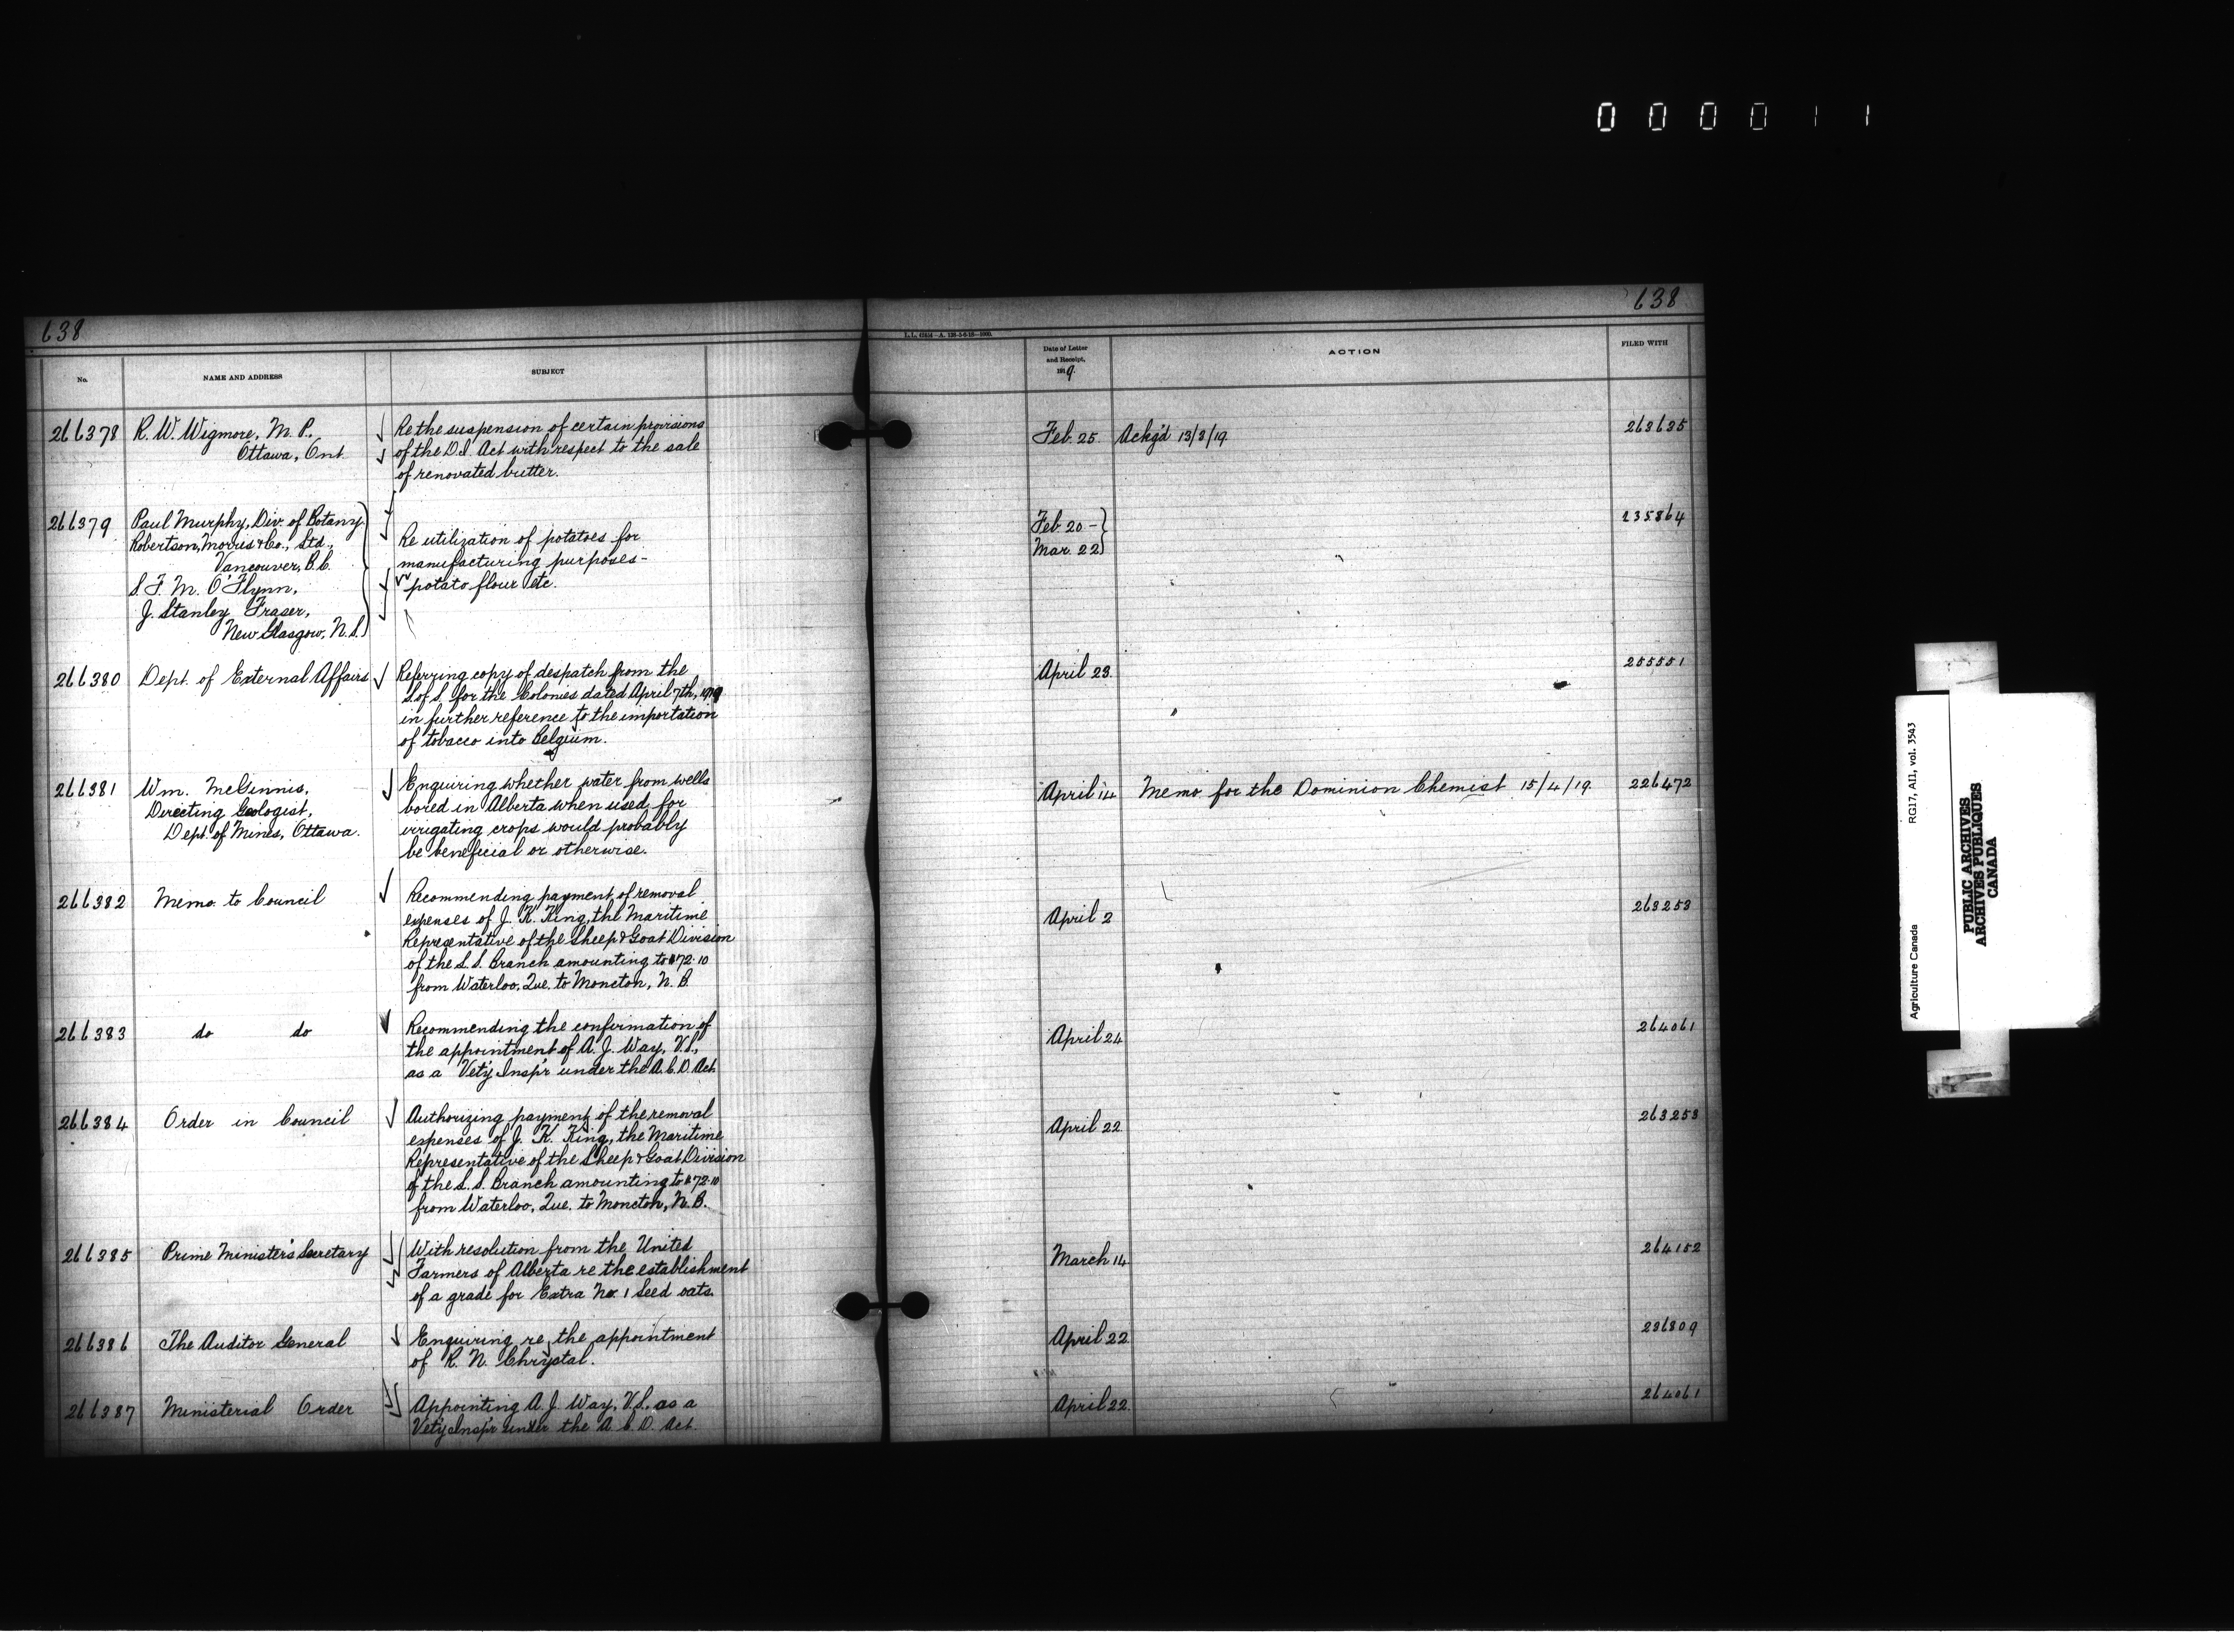 000011
638
638
L.L. 61314-A. 138-5-6-18-1000.
No.
NAME AND ADDRESS
SUBJECT
Date of Letter
and Receipt,
1919.
ACTION
FILED WITH
266378
R. W. Wigmore, M. P.,
Ottawa, Ont.
Re the suspension of certain provisions
of the D.I. Act with respect to the sale
of renovated butter.
Feb. 25
Ackg'd 13/3/19.
263635
266379
Paul Murphy, Div. of Botany
Robertson, Morris & Co., Ltd.,
Vancouver, B.C.
S. F. M. O'Flynn,
J. Stanley Fraser,
New Glasgow, N.S.
Re utilization of potatoes for
manufacturing purposes-
potato flour etc.
Feb. 20 -
Mar. 22
235864
266380
Dept. of External Affairs
Referring copy of despatch from the
S. of S. for the Colonies dated April 7th, 1919
in further reference to the importation
of tobacco into Belgium.
April 23.
255551
266381
Wm. McGinnis,
Directing Geologist,
Dept. of Mines, Ottawa.
Enquiring whether water from wells
bored in Alberta when used for
irrigating crops would probably
be beneficial or otherwise.
April 14
Memo. for the Dominion Chemist 15/4/19.
226472
266382
Memo. to Council
Recommending payment of removal
expenses of J. K. King, the Maritime
Representative of the Sheep & Goat Division
of the L. S. Branch amounting to $72.10
from Waterloo, Que. to Moncton, N. B.
April 2
263253
266383
do do
Recommending the confirmation of
the appointment of A. J. Way, V.S.,
as a Vet'y Insp'r under the A. C. D. Act
April 24
264061
266384
Order in Council
Authorizing payment of the removal
expenses of J. K. King, the Maritime
Representative of the Sheep & Goat Division
of the L. S. Branch amounting to $72.10
from Waterloo, Que. to Moncton, N. B.
April 22
263253
266385
Prime Minister's Secretary
With resolution from the United
Farmers of Alberta re the establishment
of a grade for Extra No. 1 Seed oats.
March 14
264152
266386
The Auditor General
Enquiring re the appointment
of R. N. Chrystal.
April 22
236809
266387
Ministerial Order
Appointing A. J. Way, V.S., as a
Vet'y Insp'r under the A. C. D. Act.
April 22.
264061
Agriculture Canada RG17, AII, vol. 3543
PUBLIC ARCHIVES
ARCHIVES PUBLIQUES
CANADA